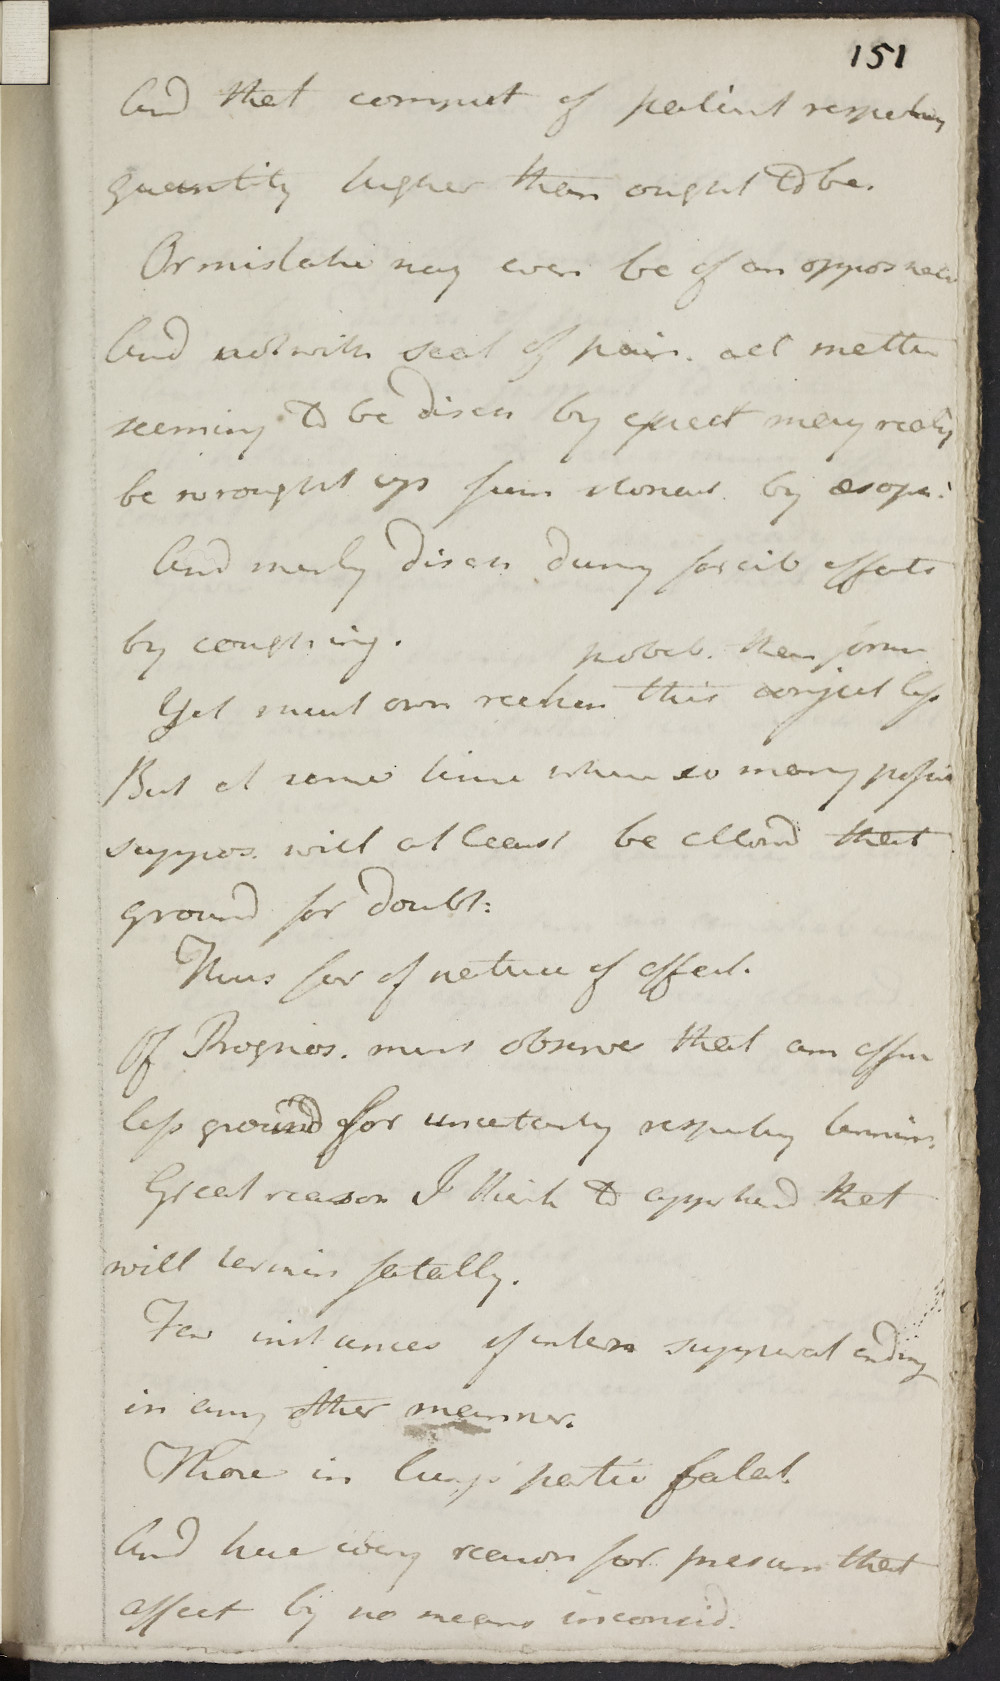 151
And that comput of patient respecting
quantity higher than ought to be.
Or mistake may even be of an oppos
And notwith seat of pain. all matter
seeming to be disch by expect may realy
be brought up from stomach by æsoph:
And merly disch during forcib efforts
by coughing.
probab. than former
Yet must own reckon this conject less
But at same time when so many possib
suppos. will at least be allowd that
ground for doubt:
Thus far of nature of affect.
Of Prognos. must observe that am
less ground for uncertainty respecting termin.
Great reason I think to apprehend that
will termin fatally.
Few instances of intern suppurat ending
in any other manner.
Those in lungs partic fatal.
And here every reason for presum that
affect by no means inconsid.